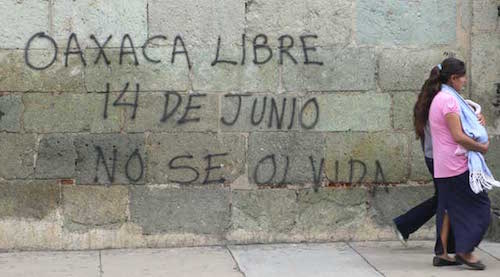 OAXACA LIBRE
14 DE JUNIO
NO SE OLVIDA